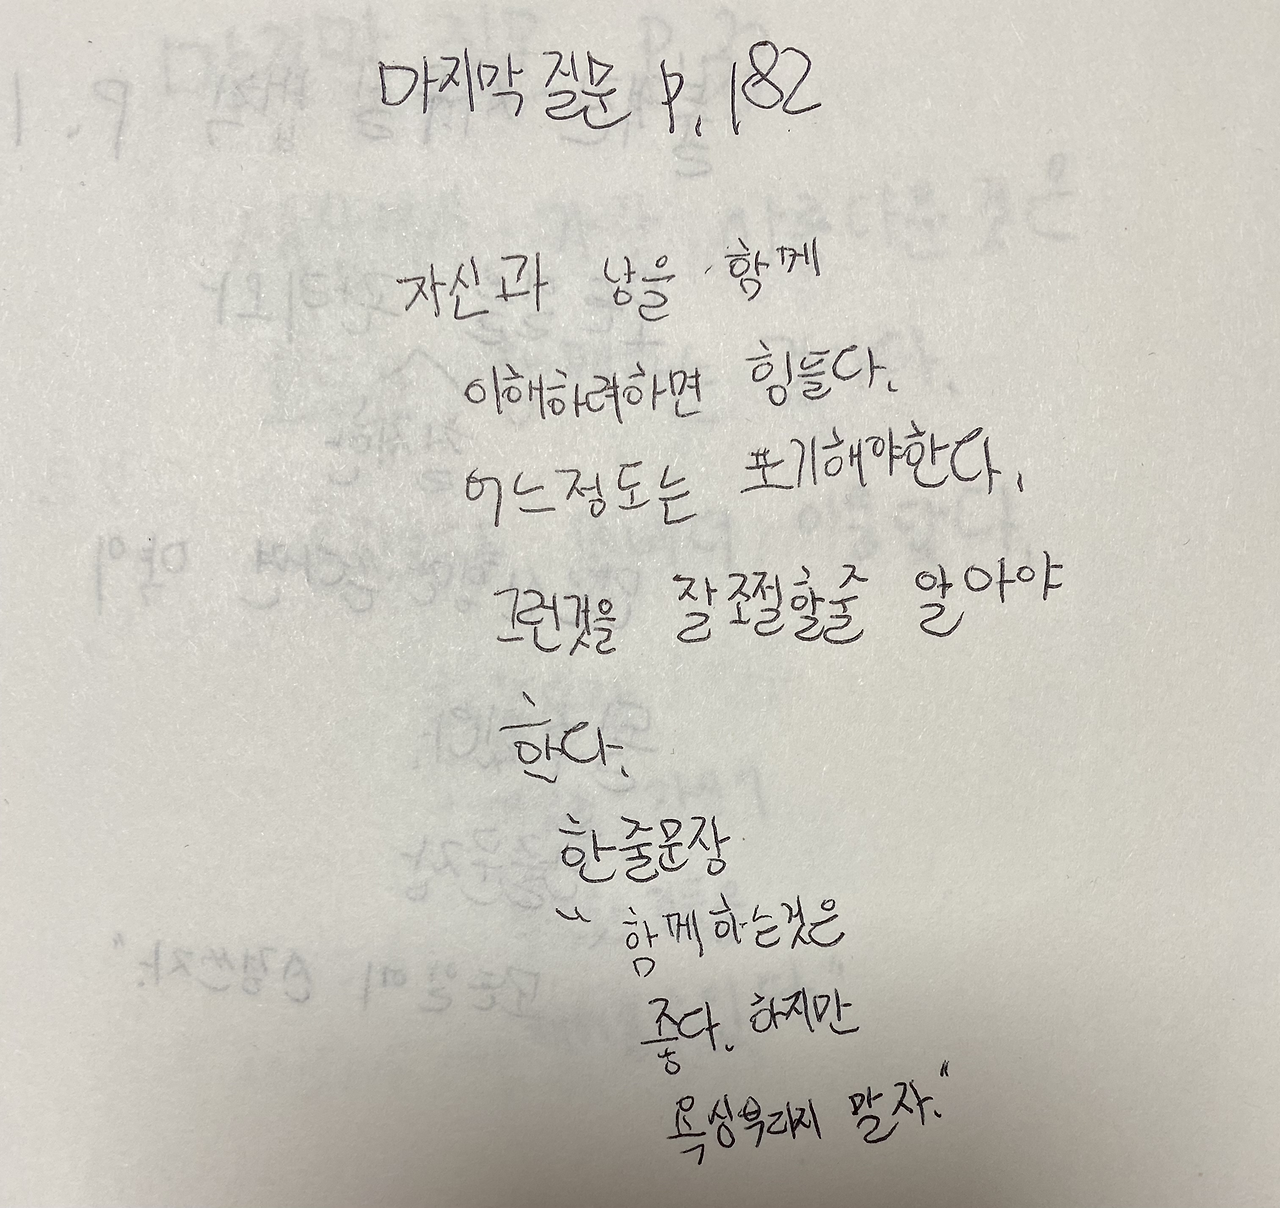 마지막 질문 p.182
자신과 남을 함께
이해하려하면 힘들다.
어느정도는 포기해야한다.
그런것을 잘 조절할줄 알아야
한다.
한줄문장
" 함께하는것은
좋다. 하지만
욕심부리지 말자."